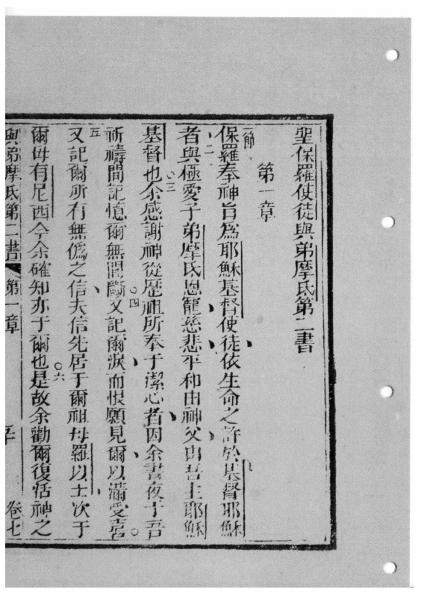 聖保羅使徒與弟摩氏第二書
第一章
一節
保羅奉神旨為耶穌基督使徒依生命之許於基督耶穌
二
者與極愛子弟摩氏恩寵慈悲平和由神父由吾主耶穌
三
基督也余感謝神從歷祖所奉于潔心者因余晝夜于吾
四
祈禱間記憶爾無間斷又記爾淚而恨願見爾以滿受喜
五
又記爾所有無偽之信夫信先居于爾祖母羅以士次于
爾母有尼西今余確知亦于爾也是故余勸爾復恬神之
六
與弟摩氏第二書 第一章 卷七